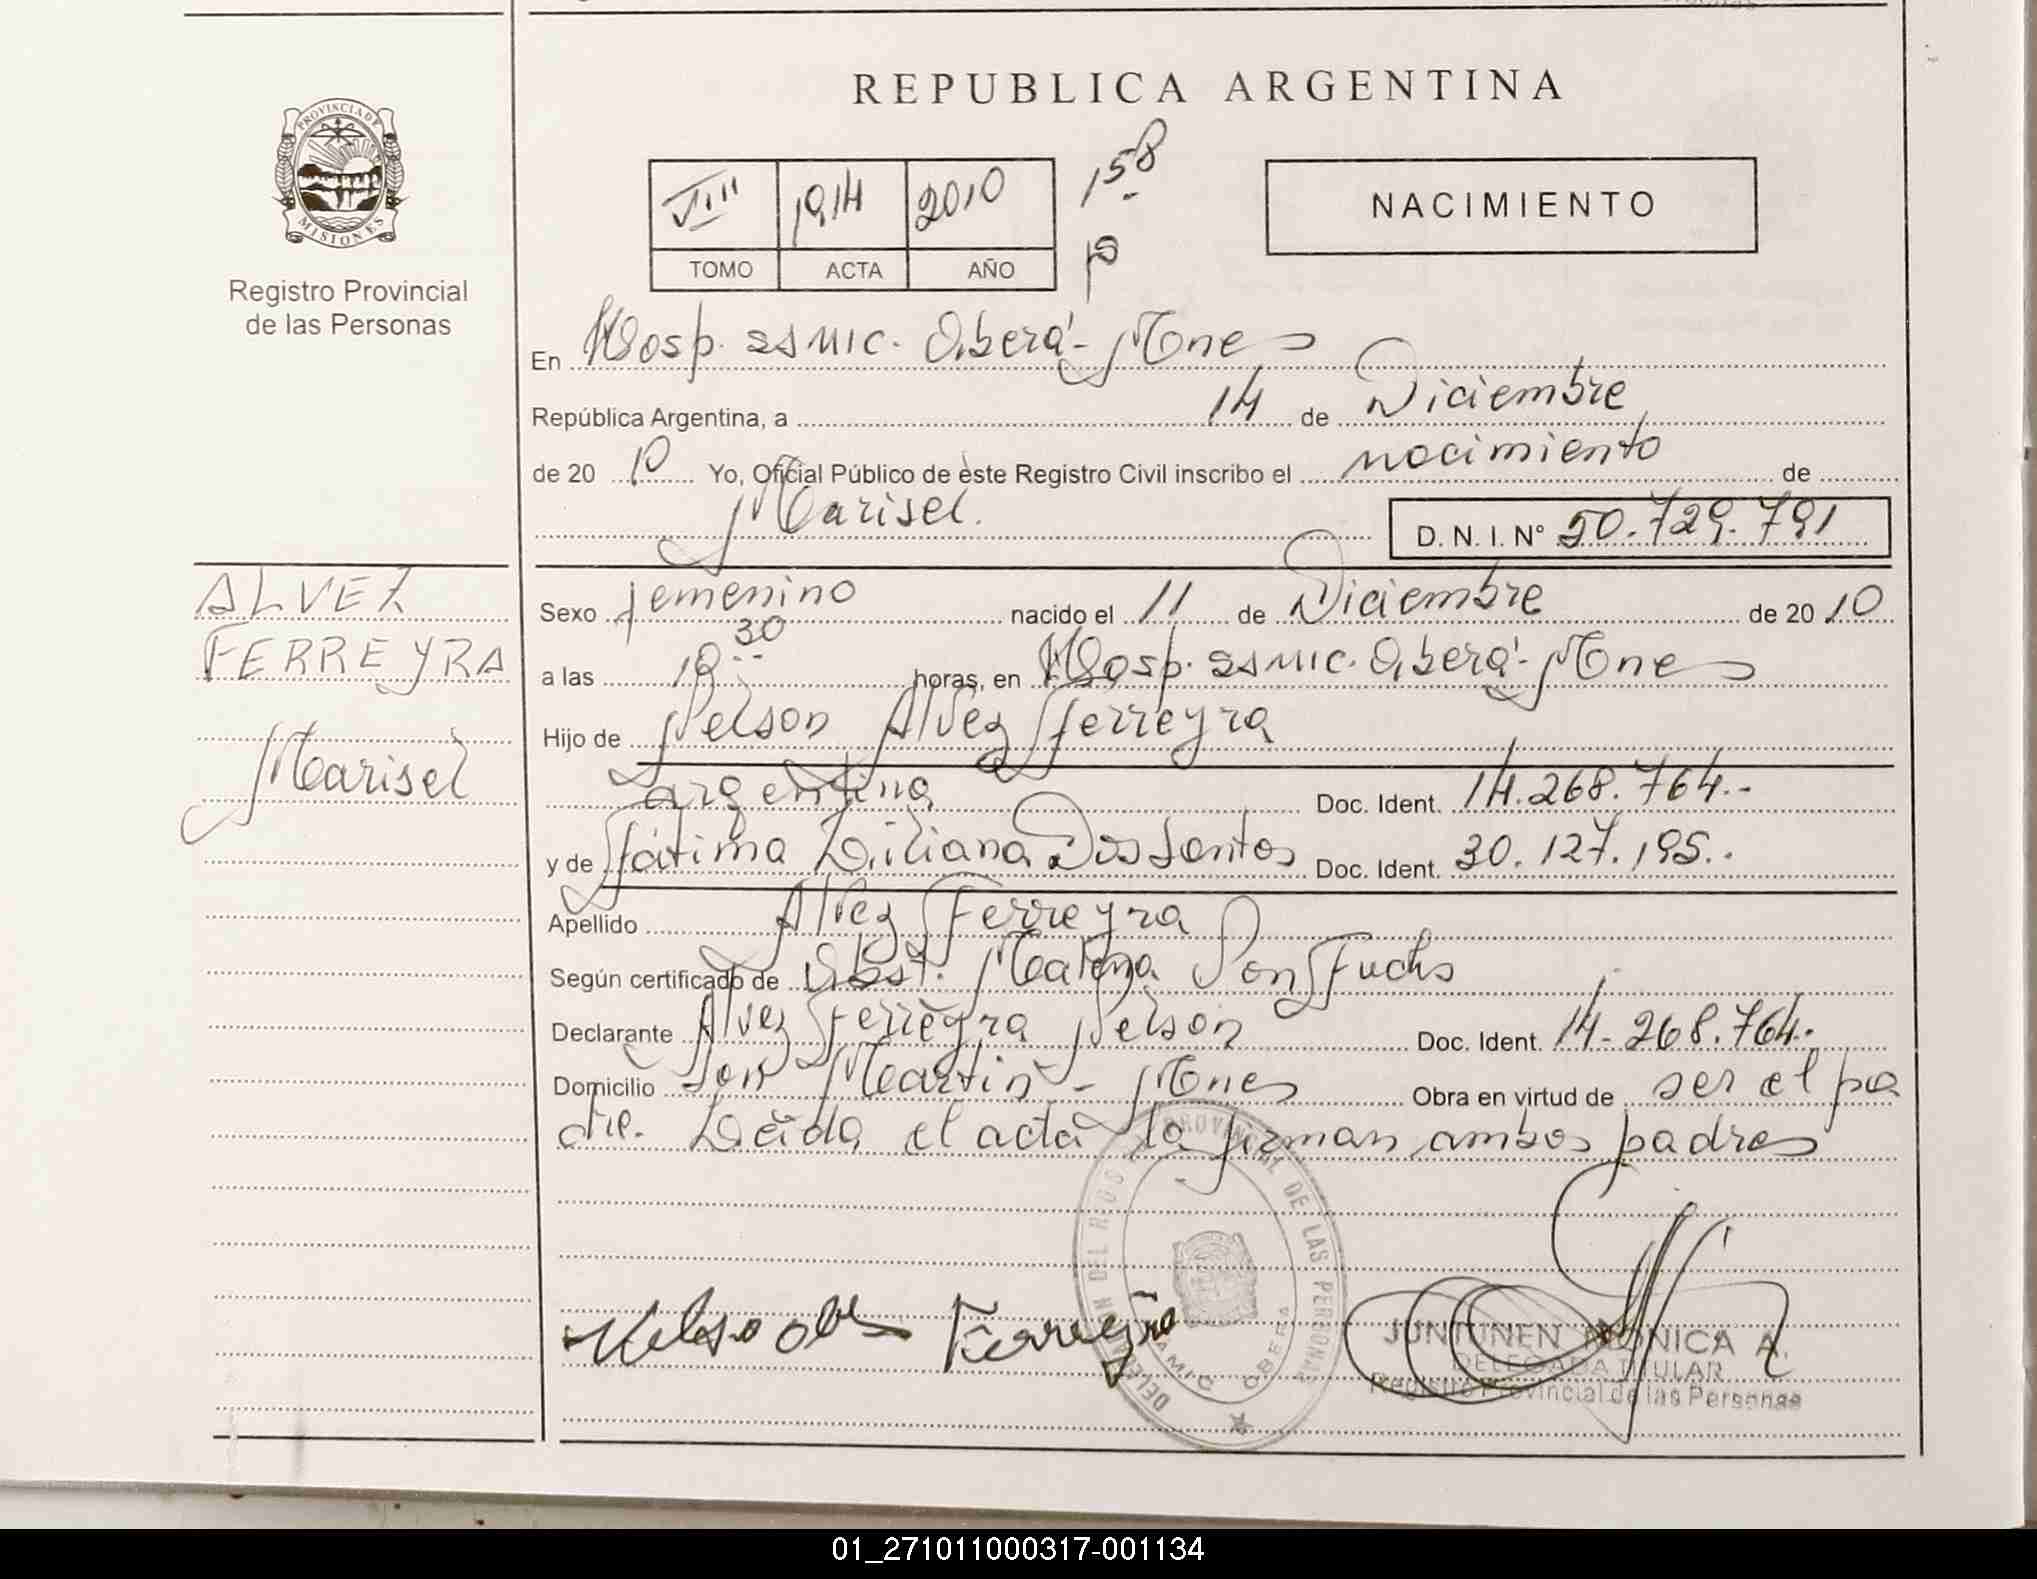 REPUBLICA ARGENTINA
PROVINCIA DE
MISIONES
Registro Provincial
de las Personas
VIII 1914 2010
TOMO ACTA AÑO
158
NACIMIENTO
En Hosp. SSMIC. Oberá - Mnes
República Argentina, a 14 de Diciembre
de 20 10 Yo, Oficial Público de este Registro Civil inscribo el nacimiento de
Marisel. D. N. I. N° 50.729.791
ALVEZ
FERREYRA
Marisel
Sexo femenino nacido el 11 de Diciembre de 20 10
a las 30 horas, en Hosp. SSMIC. Oberá - Mnes
Hijo de Nelson Alvez Ferreyra
argentino Doc. Ident. 14.268.764.-
y de Fátima Liliana Dos Santos Doc. Ident. 30.127.195..
Apellido Alvez Ferreyra
Según certificado de Obst. Fuchs
Declarante Alvez Ferreyra Nelson Doc. Ident. 14.268.764.-
Domicilio San Martín - Mnes Obra en virtud de ser el pa
dre. Leída el acta la firman ambos padres
DELEGACIÓN DEL REGISTRO PROVINCIAL DE LAS PERSONAS
SAMIC OBERA
Ferreyra
JUNTUNEN MONICA A.
DELEGADA TITULAR
Registro Provincial de las Personas
01_271011000317-001134